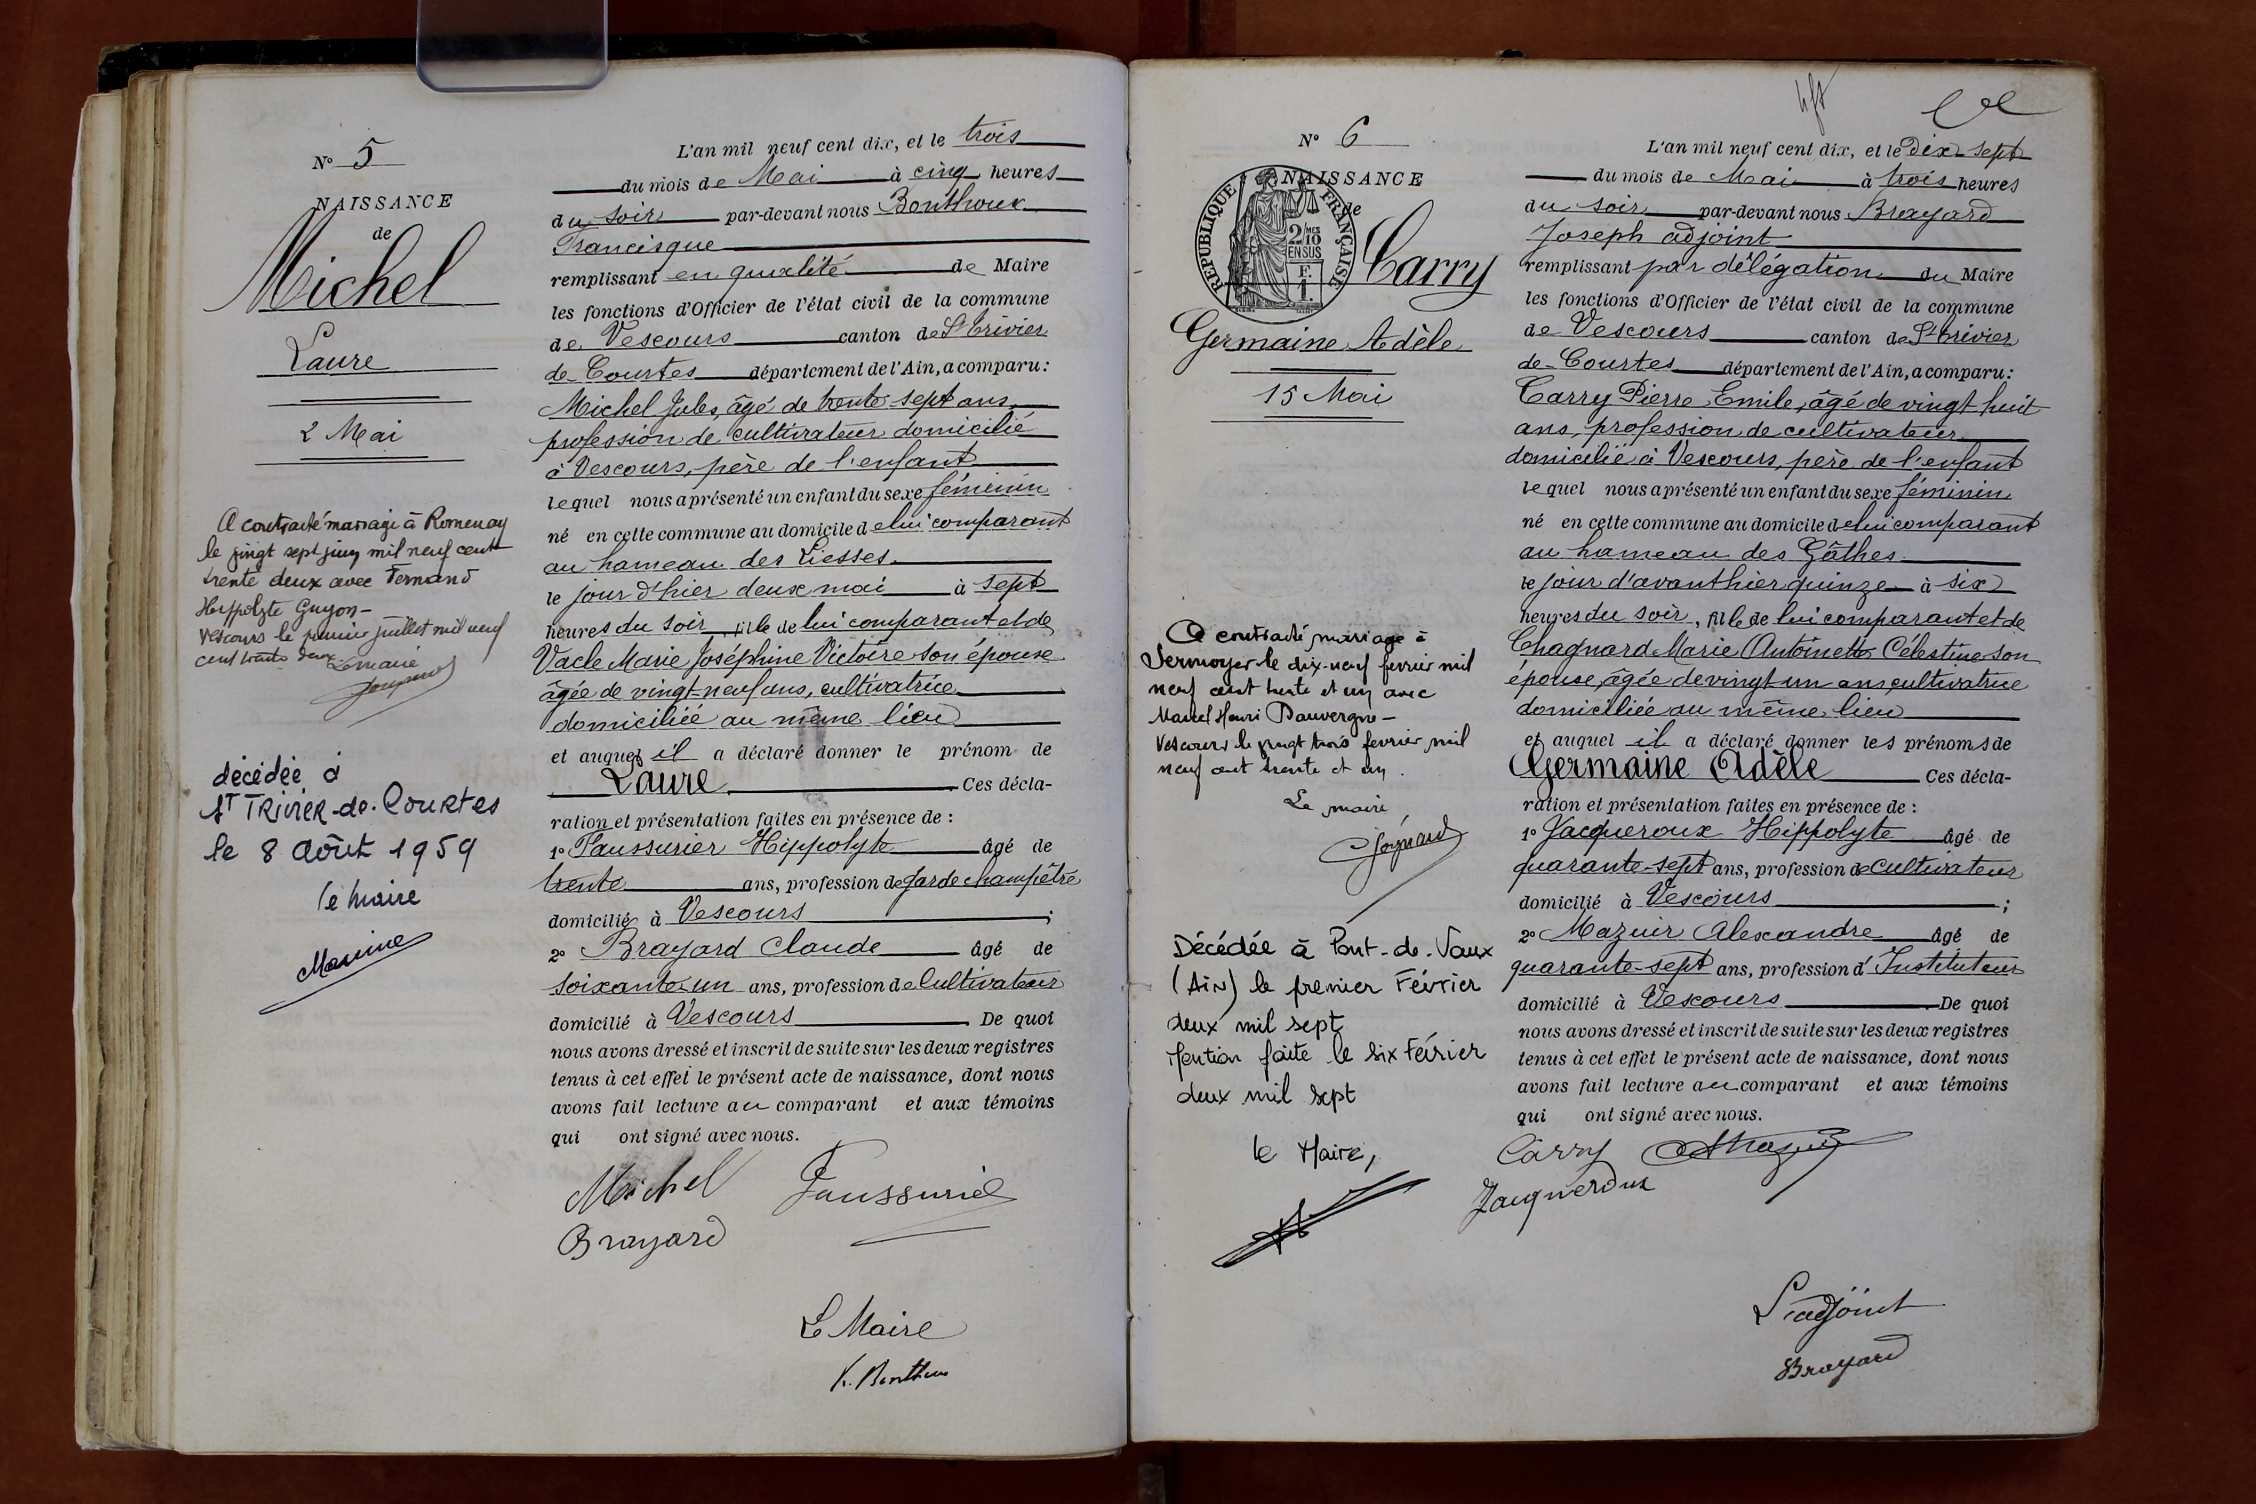 N° 5
NAISSANCE
de
Michel
Laure
2 Mai
A contracté mariage à Romenay
le vingt sept juin mil neuf cent
trente deux avec Fernand
Hippolyte Guyon -
Vescours le premier juillet mil neuf
cent trente deux
Le maire
décédée à
St TRIVIER-de-Courtes
le 8 Août 1959
le maire
L'an mil neuf cent dix, et le trois
du mois de Mai à cinq heures
du soir par-devant nous Bonthoux
Francisque
remplissant en qualité de Maire
les fonctions d'Officier de l'état civil de la commune
de Vescours canton de St Trivier
de Courtes département de l'Ain, a comparu :
Michel Jules, âgé de trente-sept ans,
profession de cultivateur domicilié
à Vescours, père de l'enfant
lequel nous a présenté un enfant du sexe féminin
né en cette commune au domicile de lui comparant
au hameau des Liesses.
le jour d'hier deux mai à sept
heures du soir, fille de lui comparant et de
Vacle Marie Joséphine Victoire son épouse
âgée de vingt-neuf ans, cultivatrice
domiciliée au même lieu
et auquel il a déclaré donner le prénom de
Laure. Ces décla-
ration et présentation faites en présence de :
1° Faussurier Hippolyte âgé de
trente ans, profession de garde champêtre
domicilié à Vescours ;
2° Brayard Claude âgé de
soixante-un ans, profession de Cultivateur
domicilié à Vescours. De quoi
nous avons dressé et inscrit de suite sur les deux registres
tenus à cet effet le présent acte de naissance, dont nous
avons fait lecture au comparant et aux témoins
qui ont signé avec nous.
Michel Faussurier
Brayard
Le Maire
F. Bonthoux
N° 6
NAISSANCE
de
REPUBLIQUE FRANÇAISE
2/10 MES
EN SUS
F.
1.
Carry
Germaine Adèle
15 Mai
A contracté mariage à
Sermoyer le dix-neuf fevrier mil
neuf cent trente et un avec
Marcel Henri Dauvergne -
Vescours le vingt trois fevrier mil
neuf cent trente et un.
Le maire
Décédée à Pont-de-Vaux
(Ain) le premier Février
deux mil sept
Mention faite le six Février
deux mil sept
le Maire,
L'an mil neuf cent dix, et le Dix-sept
du mois de Mai à trois heures
du soir par-devant nous Brayard
Joseph adjoint
remplissant par délégation du Maire
les fonctions d'Officier de l'état civil de la commune
de Vescours canton de St Trivier
de Courtes département de l'Ain, a comparu :
Carry Pierre Emile, âgé de vingt huit
ans, profession de cultivateur
domicilié à Vescours, père de l'enfant
lequel nous a présenté un enfant du sexe féminin
né en cette commune au domicile de lui comparant
au hameau des Gâthes.
le jour d'avant hier quinze à six
heures du soir, fille de lui comparant et de
Chagnard Marie Antoinette Célestine son
épouse, âgée de vingt un ans, cultivatrice
domiciliée au même lieu
et auquel il a déclaré donner les prénoms de
Germaine Adèle Ces décla-
ration et présentation faites en présence de :
1° Jacqueroux Hippolyte âgé de
quarante-sept ans, profession de Cultivateur
domicilié à Vescours ;
2° Mazuir Alexandre âgé de
quarante-sept ans, profession d'Instituteur
domicilié à Vescours. De quoi
nous avons dressé et inscrit de suite sur les deux registres
tenus à cet effet le présent acte de naissance, dont nous
avons fait lecture au comparant et aux témoins
qui ont signé avec nous.
Carry A Mazuir
Jacqueroux
L'adjoint
Brayard